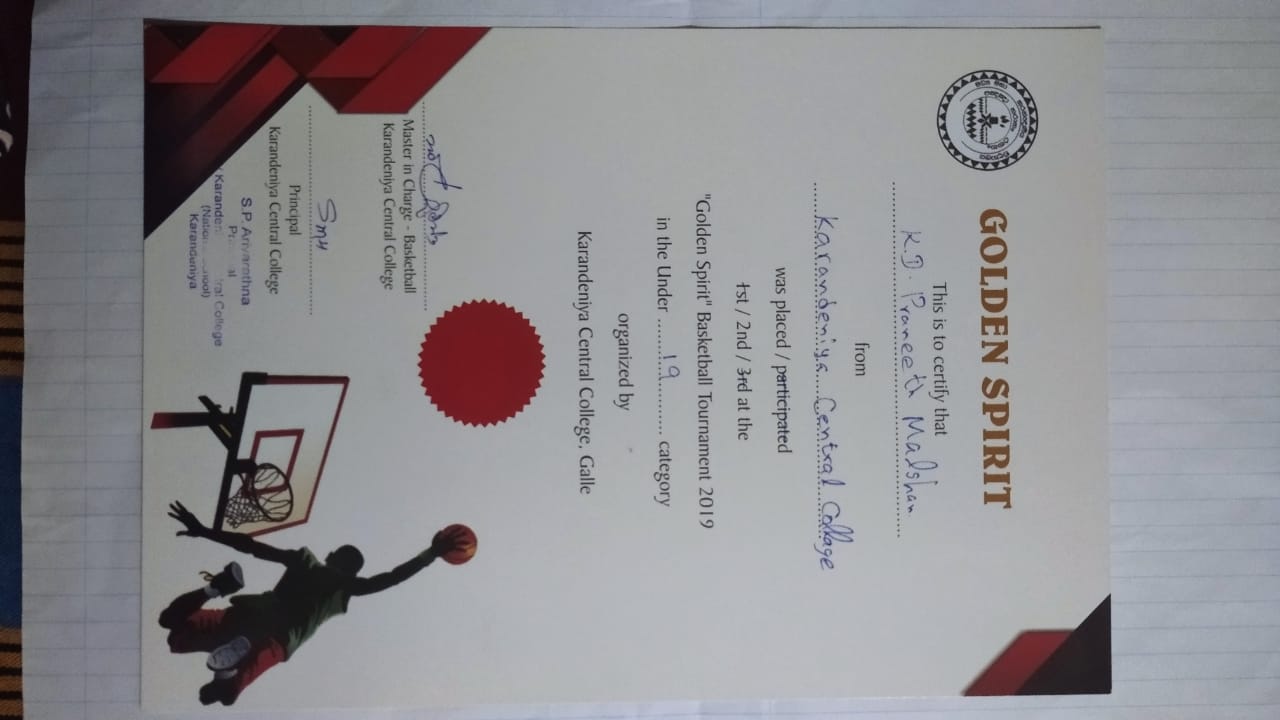 GOLDEN SPIRIT
This is to certify that
K.D. Praneeth Malshan
from
Karandeniya Central Collage
was placed / participated
1st / 2nd / 3rd at the
"Golden Spirit" Basketball Tournament 2019
in the Under 19 category
organized by
Karandeniya Central College, Galle
Master in Charge - Basketball
Karandeniya Central College
Principal
Karandeniya Central College
S.P. Ariyarathna
Karandeniya